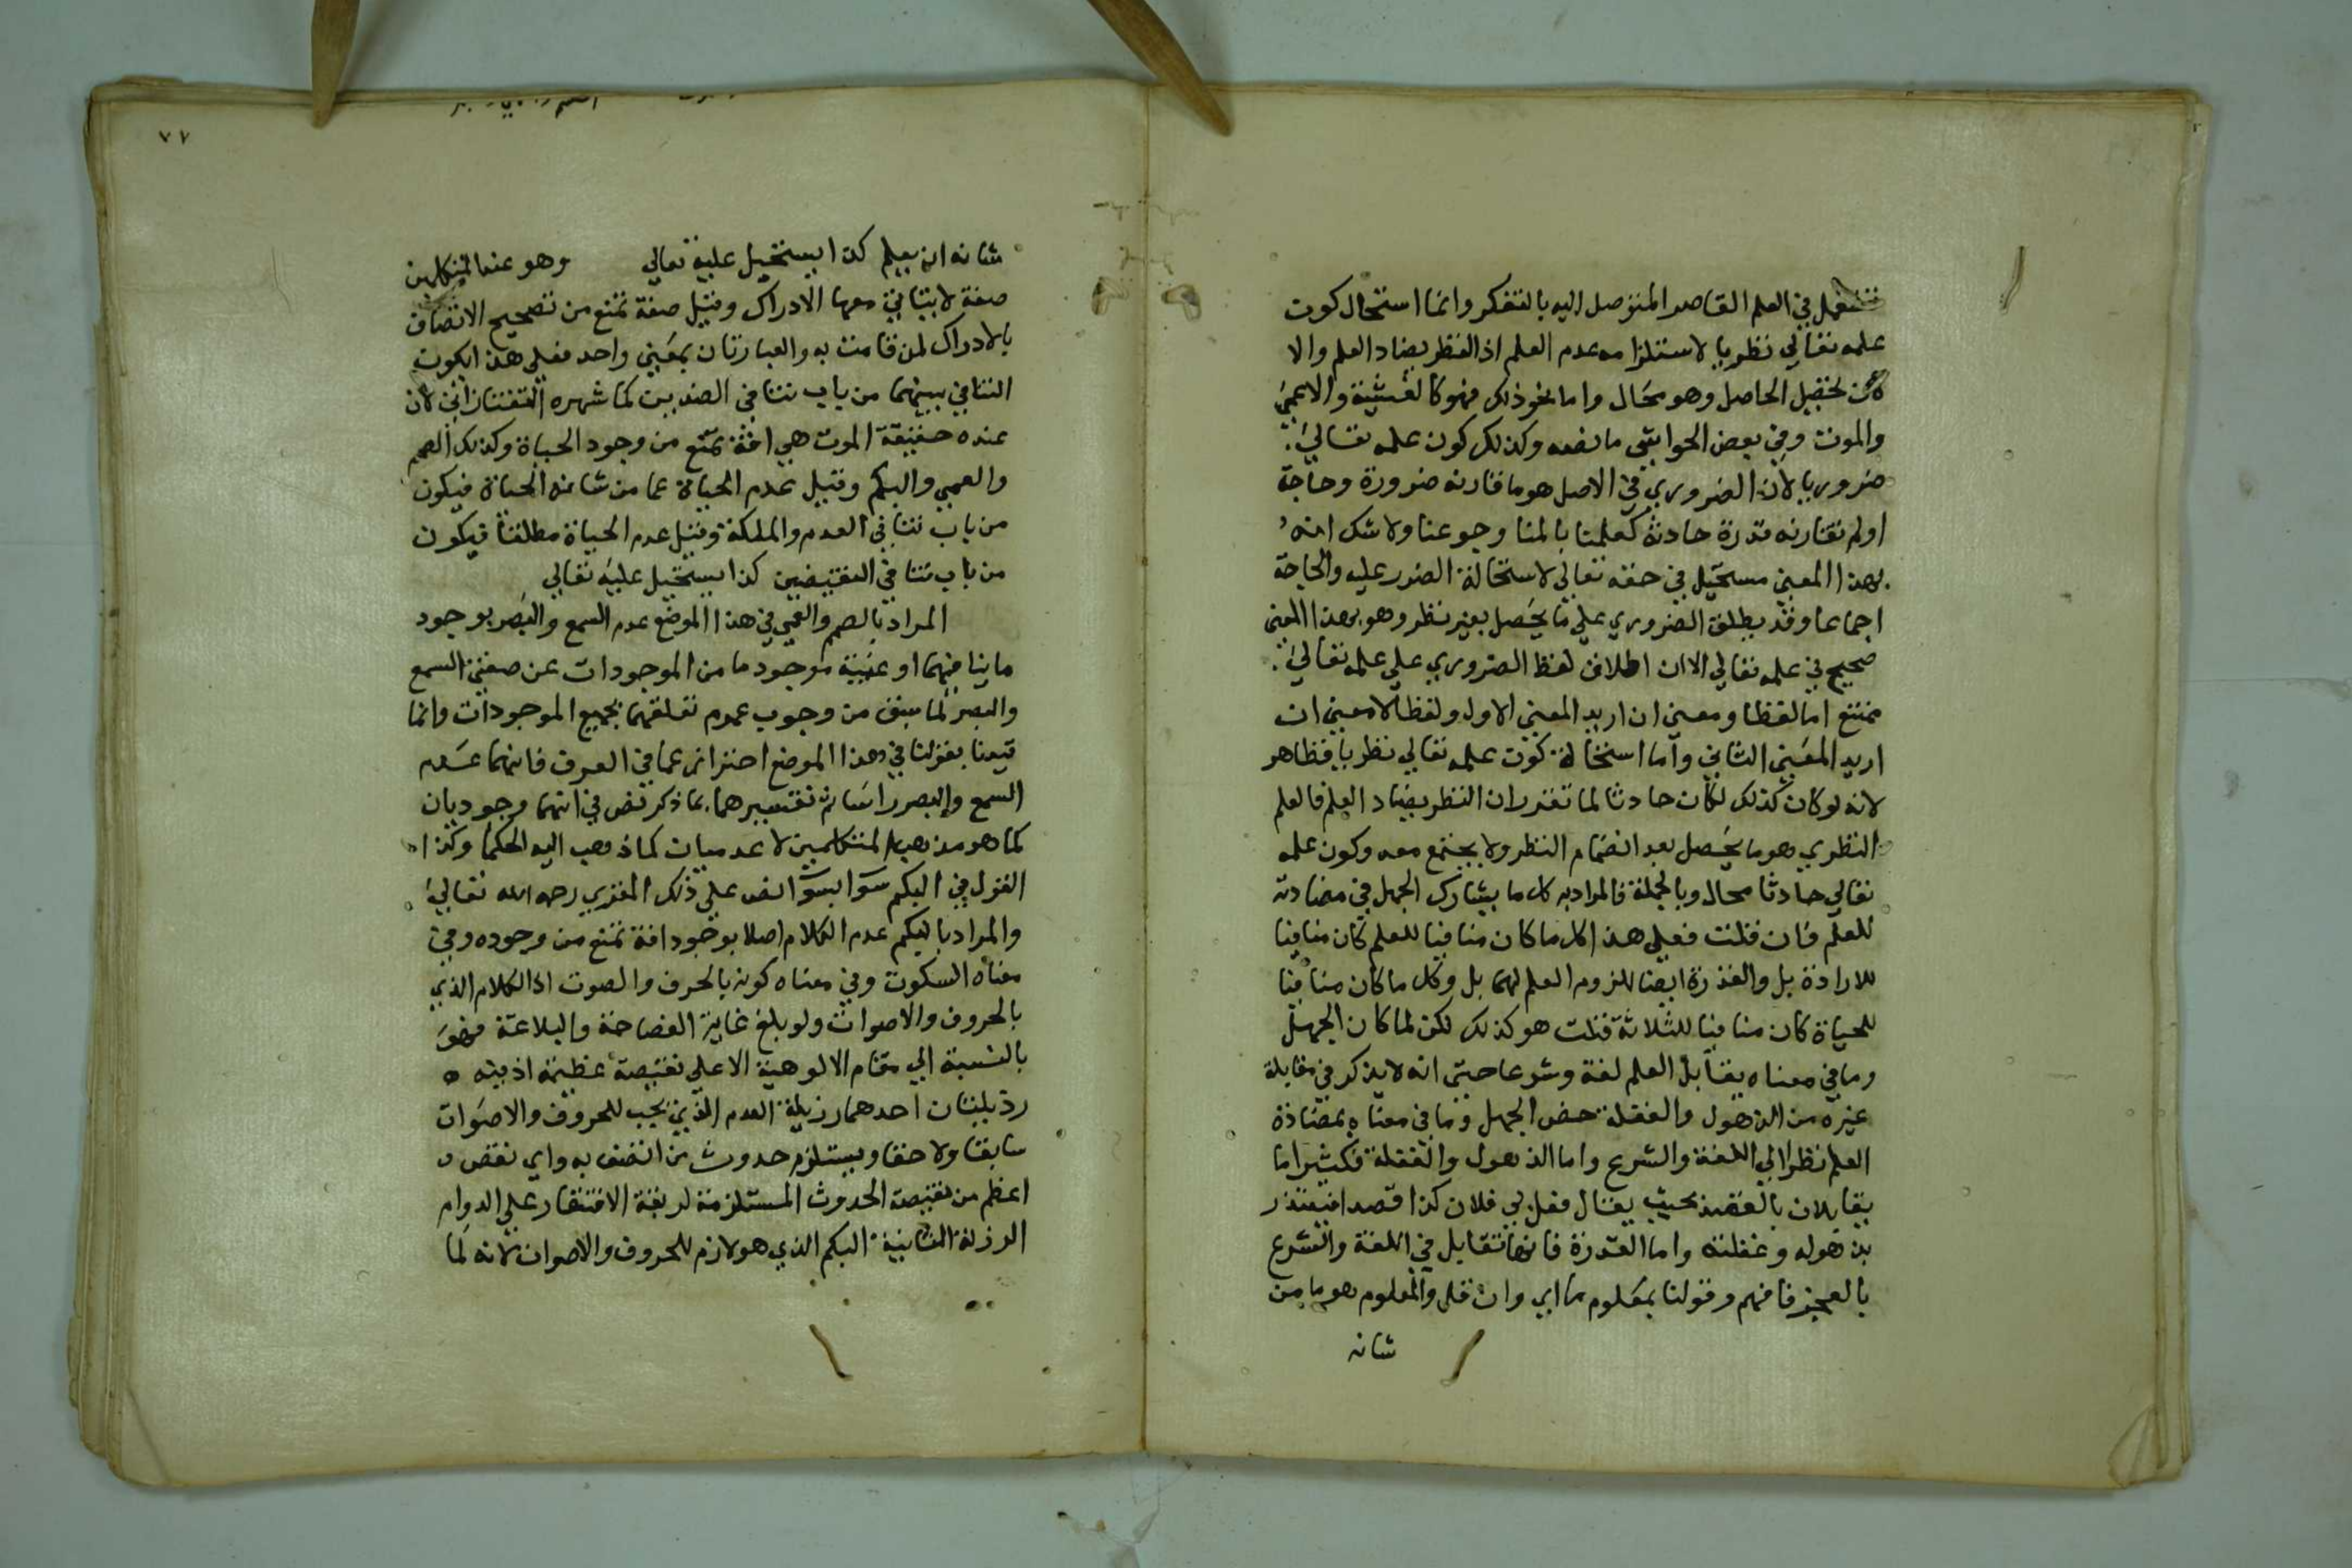 تستعمل في العلم القاصر المتوصل اليه بالتفكر وانما استحال كون
علمه تعالي نظريا لاستلزامه عدم العلم اذ النظر يضاد العلم والا
كان تحصيل الحاصل وهو محال واما نحو ذلك فهو كالغشية والاغمي
والموت وفي بعض الحواشي ما نصه وكذلك كون علمه تعالي
ضروريا لان الضروري في الاصل هو ما قارنه ضرورة وحاجة
او لم تقارنه قدرة حادثة كعلمنا بالمنا وجوعنا ولا شك انه
بهذا المعني مستحيل في حقه تعالي لاستحالة الضرر عليه والحاجة
اجماعا وقد يطلق الضروري علي ما يحصل بغير نظر وهو بهذا المعني
صحيح في علمه تعالي الا ان اطلاق لفظ الضروري علي علمه تعالي
ممتنع اما لفظا ومعني ان اريد المعني الاول ولفظا لا معني ان
اريد المعني الثاني واما استحالة كون علمه تعالي نظريا فظاهر
لانه لو كان كذلك لكان حادثا لما تقرر ان النظر يضاد العلم فالعلم
النظري هو ما يحصل بعد انضمام النظر ولا يجتمع معه وكون علمه
تعالي حادثا محال وبالجملة فالمراد به كل ما يشارك الجهل في مضادته
للعلم فان قلت فعلي هذا كل ما كان منافيا للعلم كان منافيا
للارادة بل والقدرة ايضا للزوم العلم لهما بل وكل ما كان منافيا
للحياة كان منافيا للثلاثة قلت هو كذلك لكن لما كان الجهل
وما في معناه يقابل العلم لغة وشرعا حتي انه لا يذكر في مقابلة
غيره من الذهول والغفلة خص الجهل وما في معناه بمضادة
العلم نظرا الي اللغة والشرع واما الذهول والغفلة فكثيرا ما
يقابلان بالقصد بحيث يقال فعل بي فلان كذا قصدا فيعتذر
بذهوله وغفلته واما القدرة فانها تقابل في اللغة والشرع
بالعجز فافهم وقولنا بمعلوم ما اي وان قل والمعلوم هو ما من
شانه
٧٧
شانه ان يعلم كذا يستحيل عليه تعالي وهو عند المتكلمين
صفة لا يتاتي معها الادراك وقيل صفة تمنع من تصحيح الاتصاف
بالادراك لمن قامت به والعبارتان بمعني واحد فعلي هذا يكون
التنافي بينهما من باب تنافي الضدين كما شهره التفتازاني لان
عنده حقيقة الموت هي افة تمنع من وجود الحياة وكذلك الصمم
والعمي والبكم وقيل عدم الحياة عما من شانه الحياة فيكون
من باب تنافي العدم والملكة وقيل عدم الحياة مطلقا فيكون
من باب تنافي النقيضين كذا يستحيل عليه تعالي
المراد بالصمم والعمي في هذا الموضع عدم السمع والبصر بوجود
ما ينافيهما او غيبة موجود ما من الموجودات عن صفتي السمع
والبصر لما سبق من وجوب عموم تعلقهما بجميع الموجودات وانما
قيدنا بقولنا في هذا الموضع احترازا عما في العرف فانهما عدم
السمع والبصر راسا ثم تفسيرهما بما ذكر نص في انهما وجوديان
كما هو مذهب المتكلمين لا عدميان كما ذهب اليه الحكما وكذا
القول في البكم سوا بسوا نص علي ذلك المقري رحمه الله تعالي
والمراد بالبكم عدم الكلام اصلا بوجود افة تمنع من وجوده وفي
معناه السكوت وفي معناه كونه بالحرف والصوت اذ الكلام الذي
بالحروف والاصوات ولو بلغ غاية الفصاحة والبلاغة فهو
بالنسبة الي مقام الالوهية الاعلي نقيصة عظيمة اذ فيه
رذيلتان احدهما رذيلة العدم الذي يجب للحروف والاصوات
سابقا ولاحقا ويستلزم حدوث من اتصف به واي نقص
اعظم من نقيصة الحدوث المستلزمة لربقة الافتقار علي الدوام
الرذلة الثانية البكم الذي هو لازم للحروف والاصوات لانه لما